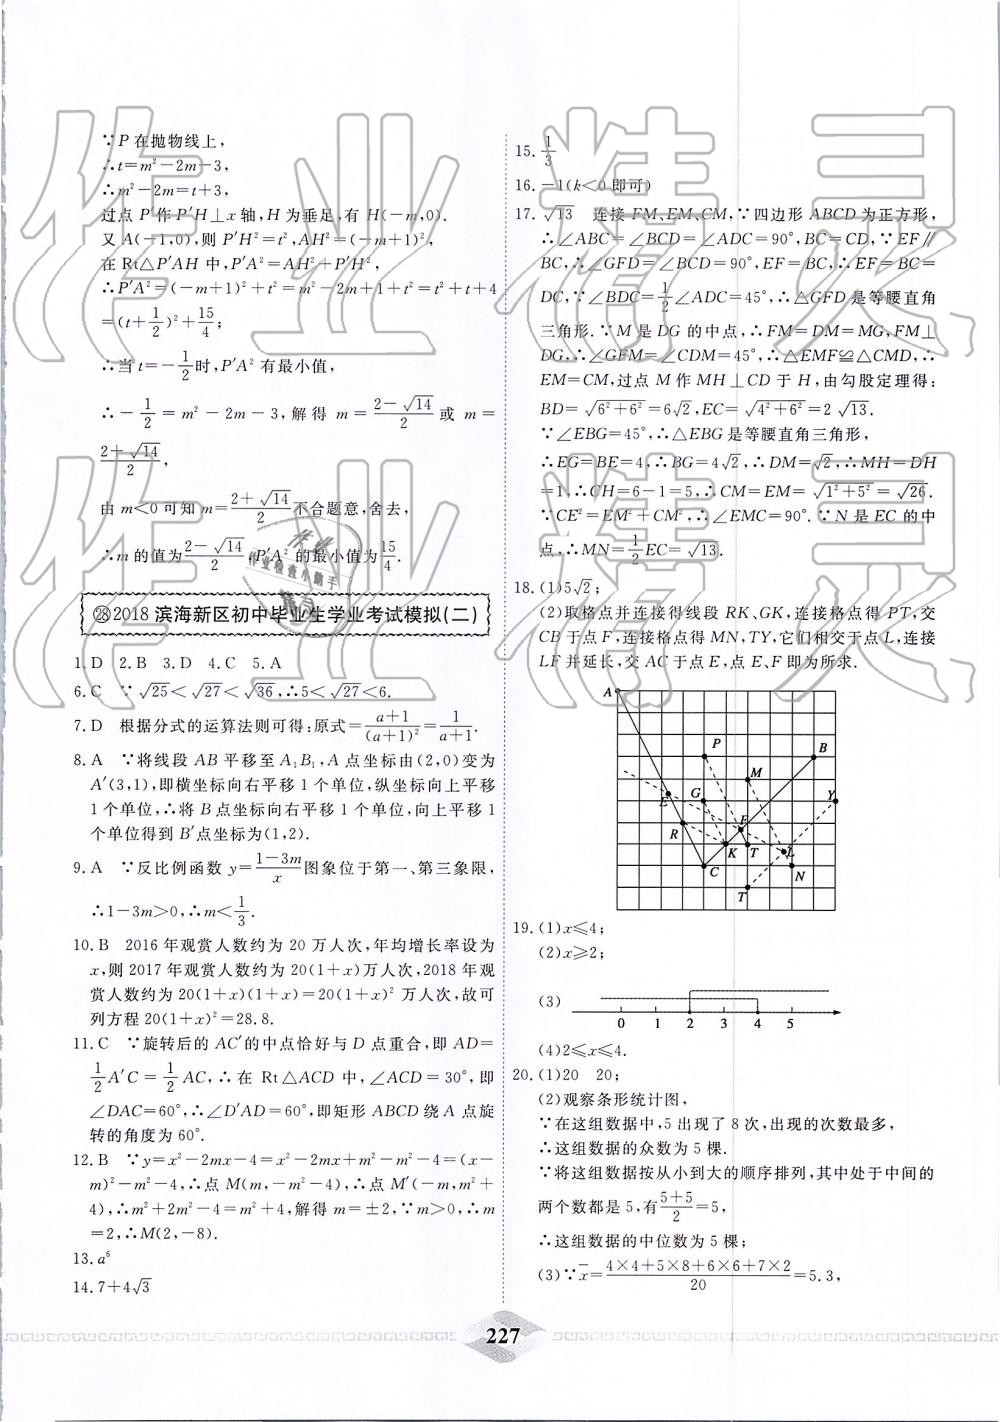 ∵P在抛物线上,
∴t=m²-2m-3,
∴m²-2m=t+3,
过点P′作P′H⊥x轴,H为垂足,有H(-m,0).
又A(-1,0),则P′H²=t²,AH²=(-m+1)²,
在Rt△P′AH中,P′A²=AH²+P′H²,
∴P′A²=(-m+1)²+t²=m²-2m+1+t²=t²+t+4
=(t+1/2)²+15/4;
∴当t=-1/2时,P′A²有最小值,
∴-1/2=m²-2m-3,解得m=(2-√14)/2或m=
(2+√14)/2,
由m<0可知m=(2+√14)/2不合题意,舍去,
∴m的值为(2-√14)/2,P′A²的最小值为15/4.
㉘2018滨海新区初中毕业生学业考试模拟(二)
1.D 2.B 3.D 4.C 5.A
6.C ∵√25<√27<√36,∴5<√27<6.
7.D 根据分式的运算法则可得:原式=(a+1)/(a+1)²=1/(a+1).
8.A ∵将线段AB平移至A₁B₁,A点坐标由(2,0)变为
A′(3,1),即横坐标向右平移1个单位,纵坐标向上平移
1个单位,∴将B点坐标向右平移1个单位,向上平移1
个单位得到B′点坐标为(1,2).
9.A ∵反比例函数y=(1-3m)/x图象位于第一、第三象限,
∴1-3m>0,∴m<1/3.
10.B 2016年观赏人数约为20万人次,年均增长率设为
x,则2017年观赏人数约为20(1+x)万人次,2018年观
赏人数约为20(1+x)(1+x)=20(1+x)²万人次,故可
列方程20(1+x)²=28.8.
11.C ∵旋转后的AC′的中点恰好与D点重合,即AD=
1/2A′C=1/2AC,∴在Rt△ACD中,∠ACD=30°,即
∠DAC=60°,∴∠D′AD=60°,即矩形ABCD绕A点旋
转的角度为60°.
12.B ∵y=x²-2mx-4=x²-2mx+m²-m²-4=(x-
m)²-m²-4,∴点M(m,-m²-4),∴点M′(-m,m²+
4),∴m²+2m²-4=m²+4,解得m=±2,∵m>0,∴m
=2,∴M(2,-8).
13.a⁶
14.7+4√3
15.1/3
16.-1(k<0即可)
17.√13 连接FM、EM、CM,∵四边形ABCD为正方形,
∴∠ABC=∠BCD=∠ADC=90°,BC=CD,∵EF∥
BC,∴∠GFD=∠BCD=90°,EF=BC,∴EF=BC=
DC,∵∠BDC=1/2∠ADC=45°,∴△GFD是等腰直角
三角形.∵M是DG的中点,∴FM=DM=MG,FM⊥
DG,∴∠GFM=∠CDM=45°,∴△EMF≌△CMD,∴
EM=CM,过点M作MH⊥CD于H,由勾股定理得:
BD=√(6²+6²)=6√2,EC=√(4²+6²)=2√13.
∵∠EBG=45°,∴△EBG是等腰直角三角形,
∴EG=BE=4,∴BG=4√2,∴DM=√2,∴MH=DH
=1,∴CH=6-1=5,∴CM=EM=√(1²+5²)=√26.
∵CE²=EM²+CM²,∴∠EMC=90°.∵N是EC的中
点,∴MN=1/2EC=√13.
18.(1)5√2;
(2)取格点并连接得线段RK、GK,连接格点得PT,交
CB于点F,连接格点得MN,TY,它们相交于点L,连接
LF并延长,交AC于点E,点E、F即为所求.
A
P
B
M
E
G
Y
F
R
K
T
L
C
N
T
19.(1)x≤4;
(2)x≥2;
(3)
0 1 2 3 4 5
(4)2≤x≤4.
20.(1)20 20;
(2)观察条形统计图,
∵在这组数据中,5出现了8次,出现的次数最多,
∴这组数据的众数为5棵.
∵将这组数据按从小到大的顺序排列,其中处于中间的
两个数都是5,有(5+5)/2=5,
∴这组数据的中位数为5棵;
(3)∵x̄=(4×4+5×8+6×6+7×2)/20=5.3,
227
作业精灵
作业精灵
作业
作业检查小助手